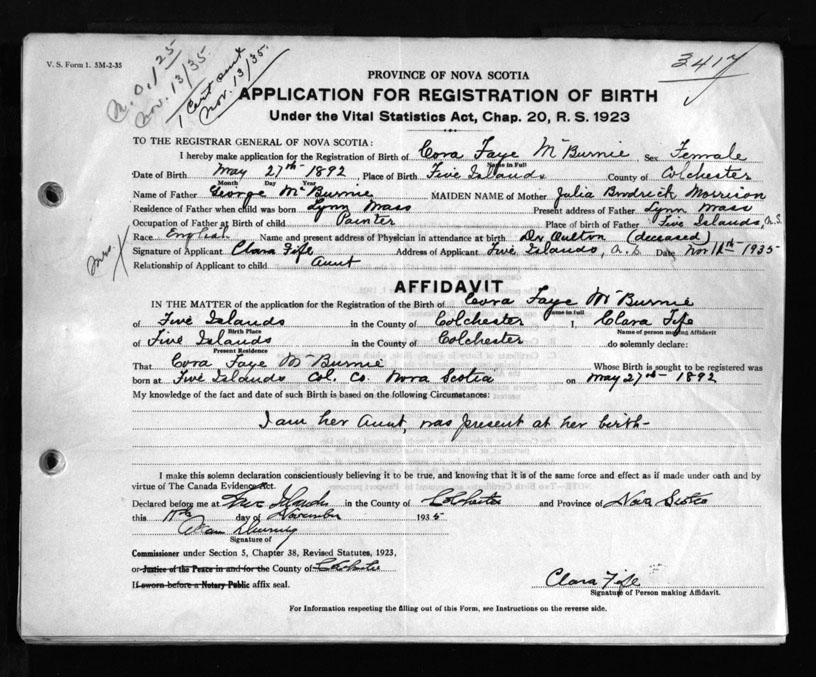 V. S. Form 1. 5M-2-35
Nov. 13/35
1 Cert sent
Nov. 13/35.
3417
PROVINCE OF NOVA SCOTIA
APPLICATION FOR REGISTRATION OF BIRTH
Under the Vital Statistics Act, Chap. 20, R. S. 1923
TO THE REGISTRAR GENERAL OF NOVA SCOTIA:
I hereby make application for the Registration of Birth of Cora Faye McBurnie, Sex Female
Name in Full
Date of Birth May 27th 1892, Place of Birth Five Islands County of Colchester
Month Day Year
Name of Father George McBurnie MAIDEN NAME of Mother Julia Brodrick Morrison
Residence of Father when child was born Lynn Mass Present address of Father Lynn Mass
Occupation of Father at Birth of child Painter Place of birth of Father Five Islands, N.S.
Race English Name and present address of Physician in attendance at birth Dr Oulton (deceased)
Mrs. X Signature of Applicant Clara Fife Address of Applicant Five Islands, N.S. Date Nov 11th 1935
Relationship of Applicant to child Aunt
AFFIDAVIT
IN THE MATTER of the application for the Registration of the Birth of Cora Faye McBurnie
Name in full
of Five Islands in the County of Colchester I, Clara Fife
Birth Place Name of person making Affidavit
of Five Islands in the County of Colchester do solemnly declare:
Present Residence
That Cora Faye McBurnie Whose Birth is sought to be registered was
born at Five Islands Col. Co. Nova Scotia on May 27th 1892
My knowledge of the fact and date of such Birth is based on the following Circumstances:
I am her Aunt, was present at her birth-
I make this solemn declaration conscientiously believing it to be true, and knowing that it is of the same force and effect as if made under oath and by
virtue of The Canada Evidence Act.
Declared before me at Five Islands in the County of Colchester and Province of Nova Scotia
this 11th day of November 1935
Signature of
Commissioner under Section 5, Chapter 38, Revised Statutes, 1923,
or Justice of the Peace in and for the County of Colchester
If sworn before a Notary Public affix seal.
Clara Fife
Signature of Person making Affidavit.
For Information respecting the filling out of this Form, see Instructions on the reverse side.